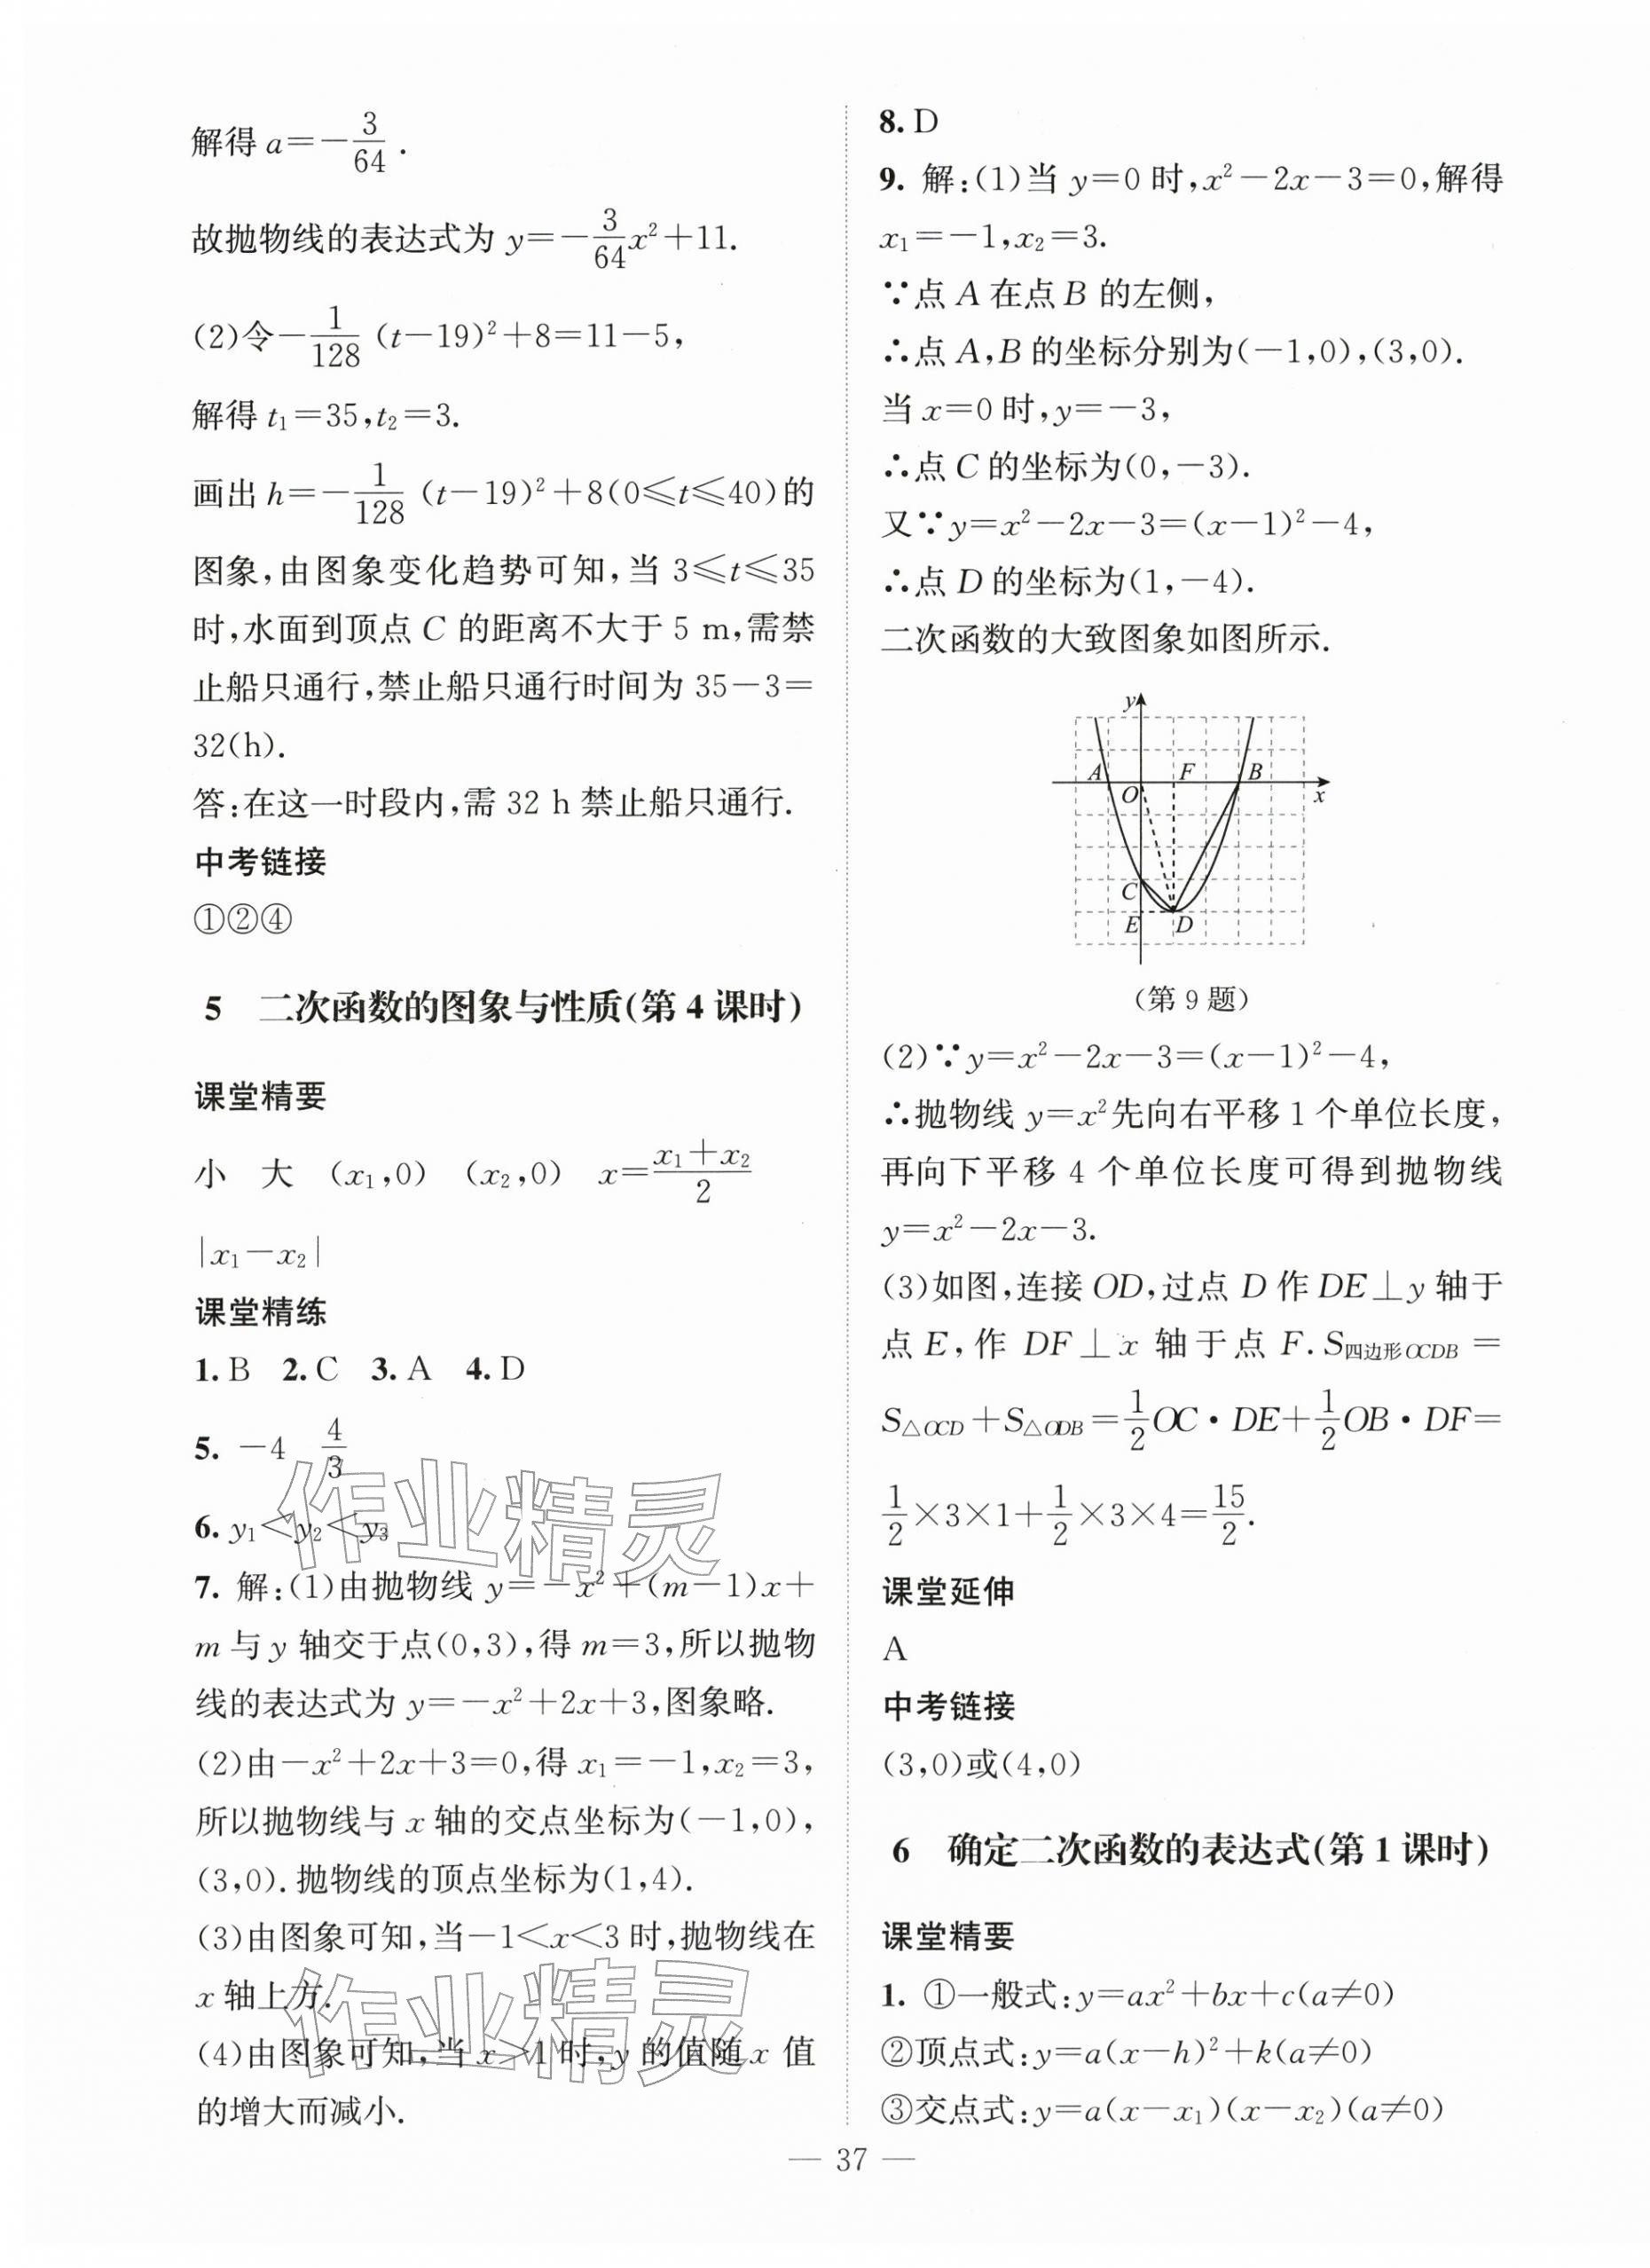 解得 a=-3/64.
故抛物线的表达式为 y=-3/64x²+11.
(2)令-1/128(t-19)²+8=11-5,
解得 t₁=35,t₂=3.
画出 h=-1/128(t-19)²+8(0≤t≤40)的
图象,由图象变化趋势可知,当 3≤t≤35
时,水面到顶点 C 的距离不大于 5 m,需禁
止船只通行,禁止船只通行时间为 35-3=
32(h).
答:在这一时段内,需 32 h 禁止船只通行.
中考链接
①②④
5 二次函数的图象与性质(第 4 课时)
课堂精要
小 大 (x₁,0) (x₂,0) x=(x₁+x₂)/2
|x₁-x₂|
课堂精练
1. B 2. C 3. A 4. D
5. -4 4/3
6. y₁<y₂<y₃
7. 解:(1)由抛物线 y=-x²+(m-1)x+
m 与 y 轴交于点(0,3),得 m=3,所以抛物
线的表达式为 y=-x²+2x+3,图象略.
(2)由-x²+2x+3=0,得 x₁=-1,x₂=3,
所以抛物线与 x 轴的交点坐标为(-1,0),
(3,0).抛物线的顶点坐标为(1,4).
(3)由图象可知,当-1<x<3 时,抛物线在
x 轴上方.
(4)由图象可知,当 x>1 时,y 的值随 x 值
的增大而减小.
作业精灵
作业精灵
8. D
9. 解:(1)当 y=0 时,x²-2x-3=0,解得
x₁=-1,x₂=3.
∵点 A 在点 B 的左侧,
∴点 A,B 的坐标分别为(-1,0),(3,0).
当 x=0 时,y=-3,
∴点 C 的坐标为(0,-3).
又∵y=x²-2x-3=(x-1)²-4,
∴点 D 的坐标为(1,-4).
二次函数的大致图象如图所示.
y
A F B
O x
C
E D
(第 9 题)
(2)∵y=x²-2x-3=(x-1)²-4,
∴抛物线 y=x²先向右平移 1 个单位长度,
再向下平移 4 个单位长度可得到抛物线
y=x²-2x-3.
(3)如图,连接 OD,过点 D 作 DE⊥y 轴于
点 E,作 DF⊥x 轴于点 F.S四边形OCDB=
S△OCD+S△ODB=1/2OC·DE+1/2OB·DF=
1/2×3×1+1/2×3×4=15/2.
课堂延伸
A
中考链接
(3,0)或(4,0)
6 确定二次函数的表达式(第 1 课时)
课堂精要
1. ①一般式:y=ax²+bx+c(a≠0)
②顶点式:y=a(x-h)²+k(a≠0)
③交点式:y=a(x-x₁)(x-x₂)(a≠0)
— 37 —